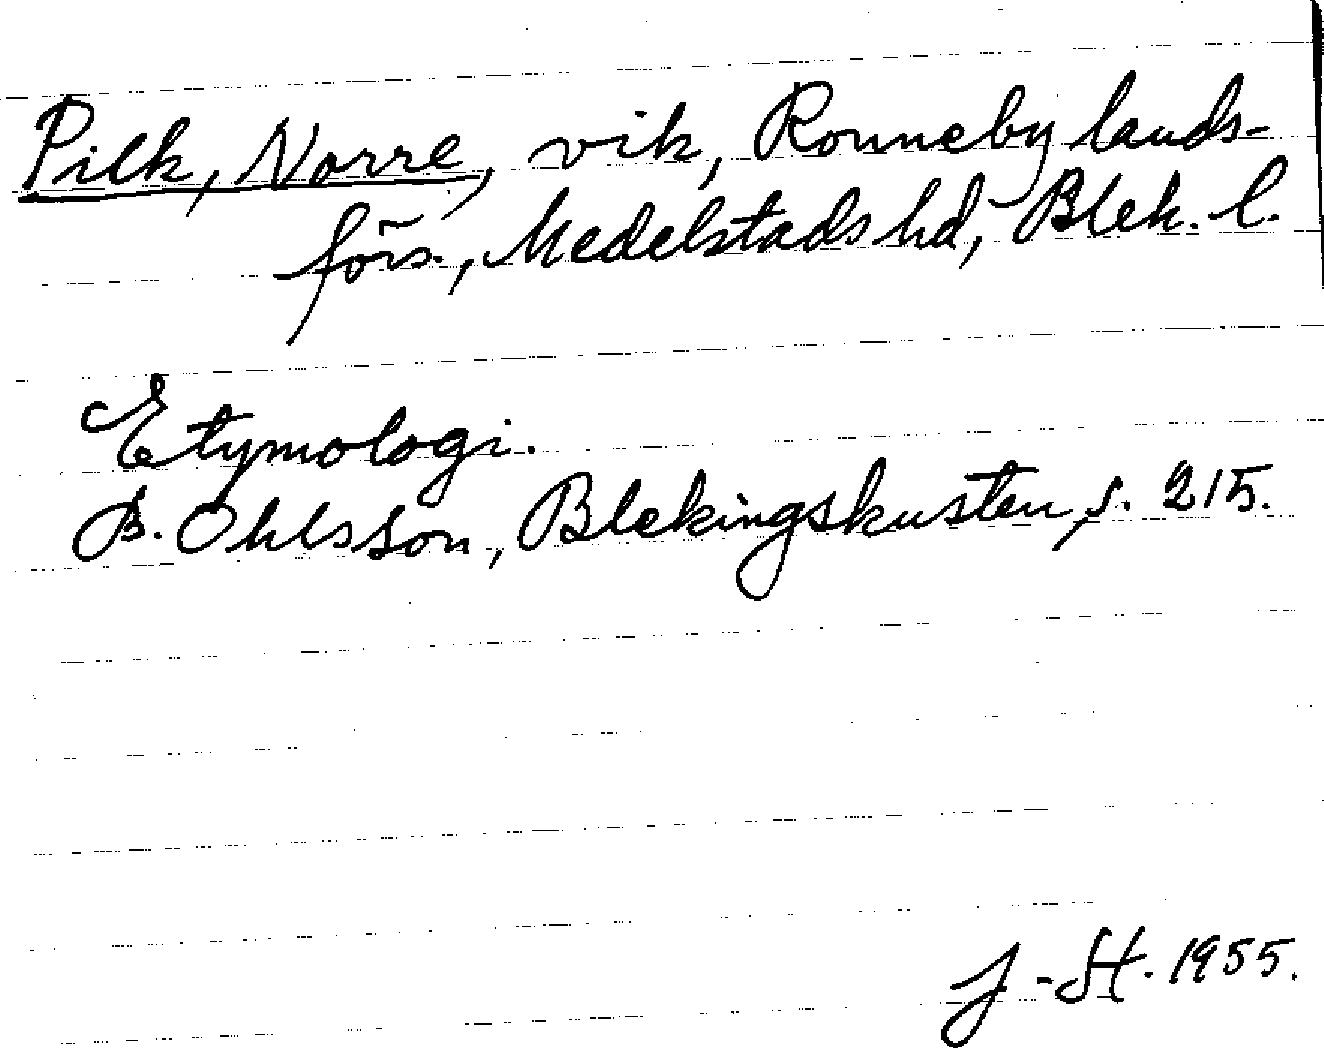 Pilk, Norre, vik, Ronneby lands-
förs., Medelstads hd, Blek. l.
Etymologi.
B. Ohlsson, Blekingskusten, s. 215.
J-H. 1955.